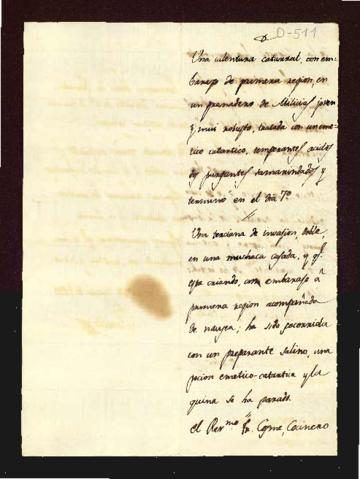 D-511
Una calentura catarral, con em-
barazo de primera region, en
un granadero de Milicias joven
y muy robusto, tratada con un eme-
tico catartico, temperantes acidos
y purgantes tamarindados y
termino en el dia 7º
Una terciana de invasion, doble,
en una muchacha casada, y qe.
esta criando, com embaraso a
primera region acompañada
de nausea; ha sido socorrida
con un preparante salino, una
pocion emetico-catartica y la
quina se ha parado.
el Rermo Fr. Cosme, Cocinero